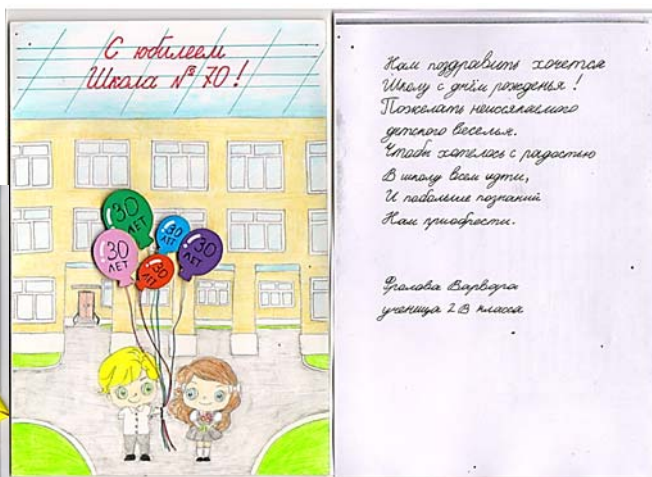 С юбилеем
Школа № 70!
30
ЛЕТ
30
ЛЕТ
30
ЛЕТ
30
ЛЕТ
30
ЛЕТ
Нам поздравить хочется
Школу с днём рожденья!
Пожелать неиссякаемого
детского веселья.
Чтобы хотелось с радостью
В школу всем идти,
И побольше познаний
Нам приобрести.
Фролова Варвара
ученица 2 В класса